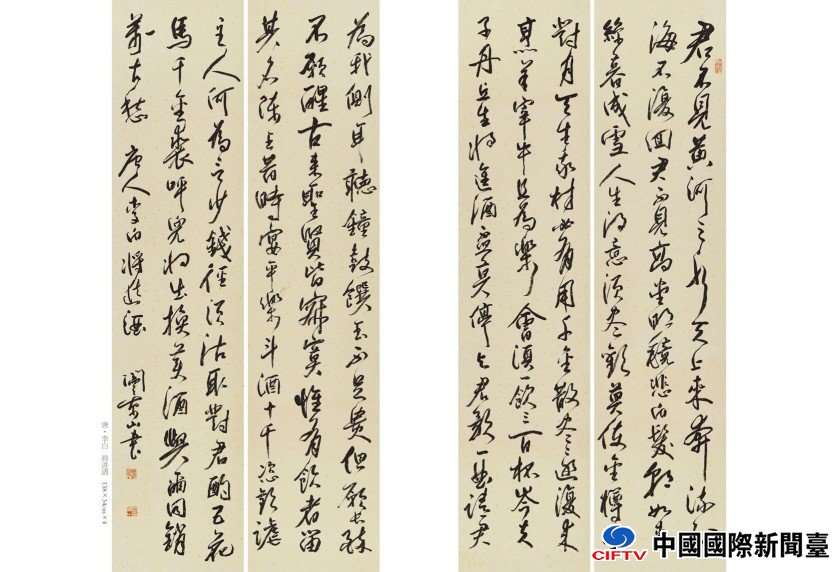 君不見黃河之水天上來奔流到
海不復回君不見高堂明鏡悲白髮朝如青
絲暮成雪人生得意須盡歡莫使金樽
對月天生我材必有用千金散盡還復來
烹羊宰牛且為樂會須一飲三百杯岑夫
子丹丘生將進酒君莫停與君歌一曲請君
為我側耳聽鐘鼓饌玉不足貴但願長醉
不願醒古來聖賢皆寂寞惟有飲者留
其名陳王昔時宴平樂斗酒十千恣歡謔
主人何為言少錢徑須沽取對君酌五花
馬千金裘呼兒將出換美酒與爾同銷
萬古愁 唐人李白將進酒 山書
唐・李白 將進酒 138×34cm×4
CIFTV 中國國際新聞臺